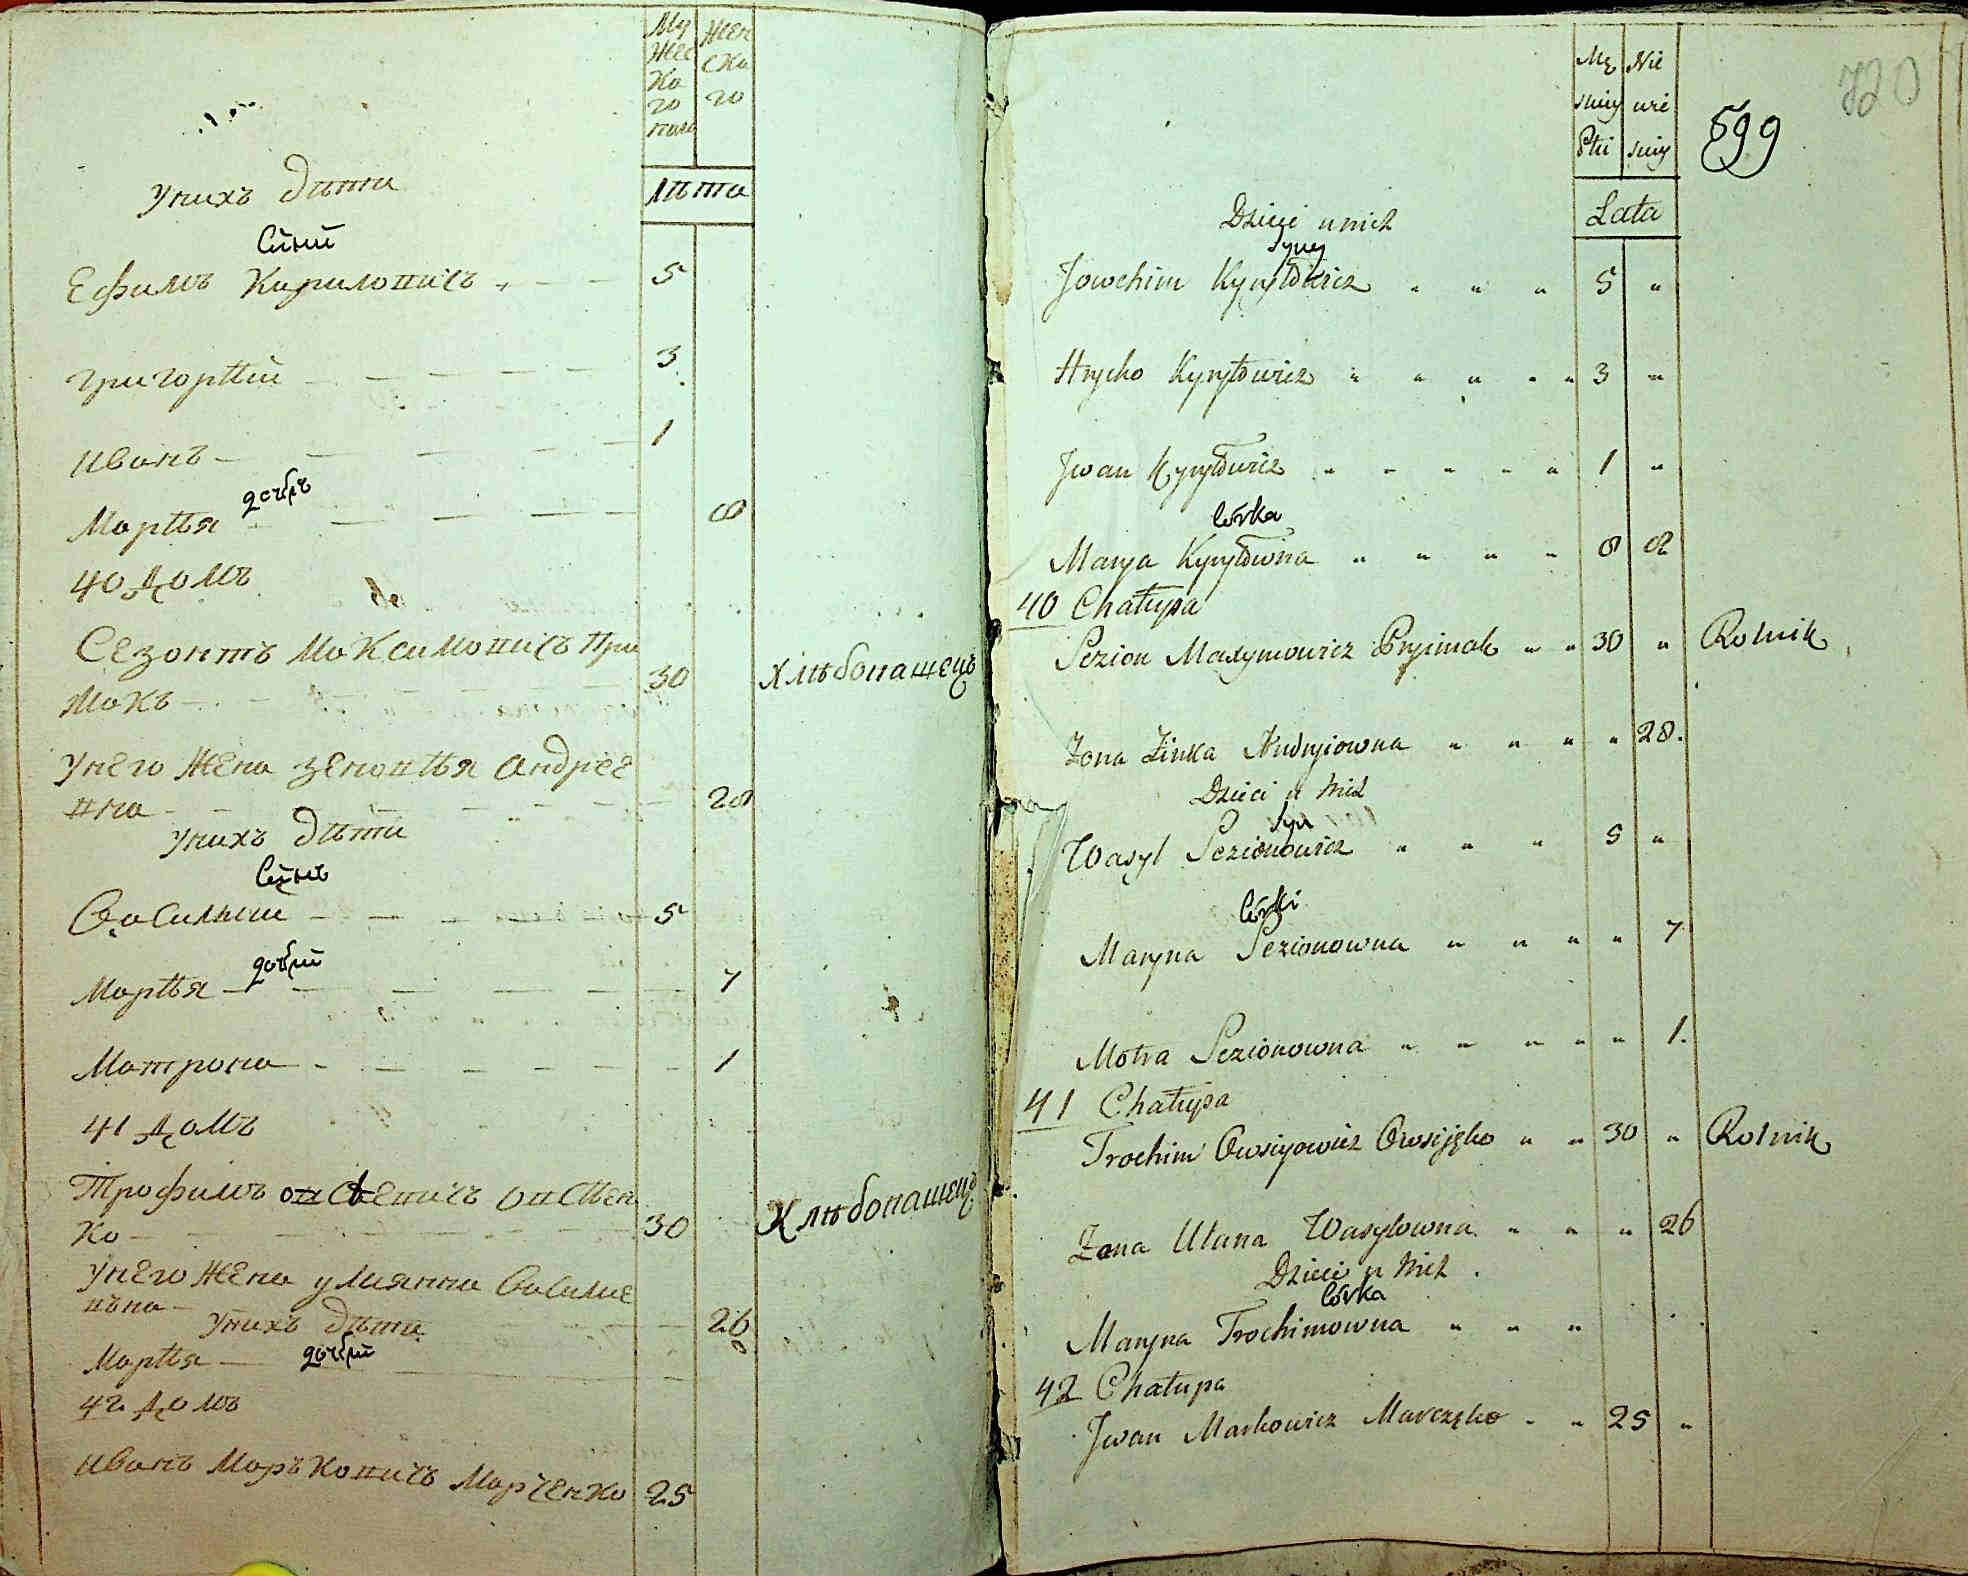 Му
жес
ка
го
пола
Жен
ска
го
Лѣта
Унихъ дѣти
Сини
Ефимъ Кириловичъ 5
Григорій 3
Иванъ 1
дочъ
Марія 8
40 Домъ
Сезонтъ Максимовичъ При
макъ 30 Хлѣбопашецъ
Унего Жена Зеновія Андрее
вна 28
Унихъ дѣти
Синъ
Василий 5
дочки
Марія 7
Матрона 1
41 Домъ
Трофимъ Овсѣевичъ Овсіен
ко 30 Хлѣбопашецъ
Унего Жена Улиянна Василие
вна 26
Унихъ дѣти
Марія дочки
42 Домъ
Иванъ Марковичъ Марченко 25
720
599
Mę
skiey
Płci
Nie
wie
skiey
Lata
Dzieci u nich
Syny
Jowchim Kyryłowicz " " " 5 "
Hryćko Kyryłowicz " " " " " 3 "
Jwan Kyryłowicz " " " " " 1 "
Córka
Marya Kyryłowna " " " " 8 8
40 Chałupa
Sezion Maxymowicz Pryimak " " 30 " Rolnik
Żona Zinka Andryiowna " " " " 28.
Dzieci u nich
Syn
Wasyl Sezionowicz " " " 5 "
Córki
Maryna Sezionowna " " " " 7
Motra Sezionowna " " " " " 1.
41 Chałupa
Trochim Owsiyowicz Owsijęko " " 30 " Rolnik
Żona Ulana Wasylowna " " " 26
Dzieci u nich
Córka
Maryna Trochimowna " " "
42 Chałupa
Jwan Markowicz Marczęko " " 25 "